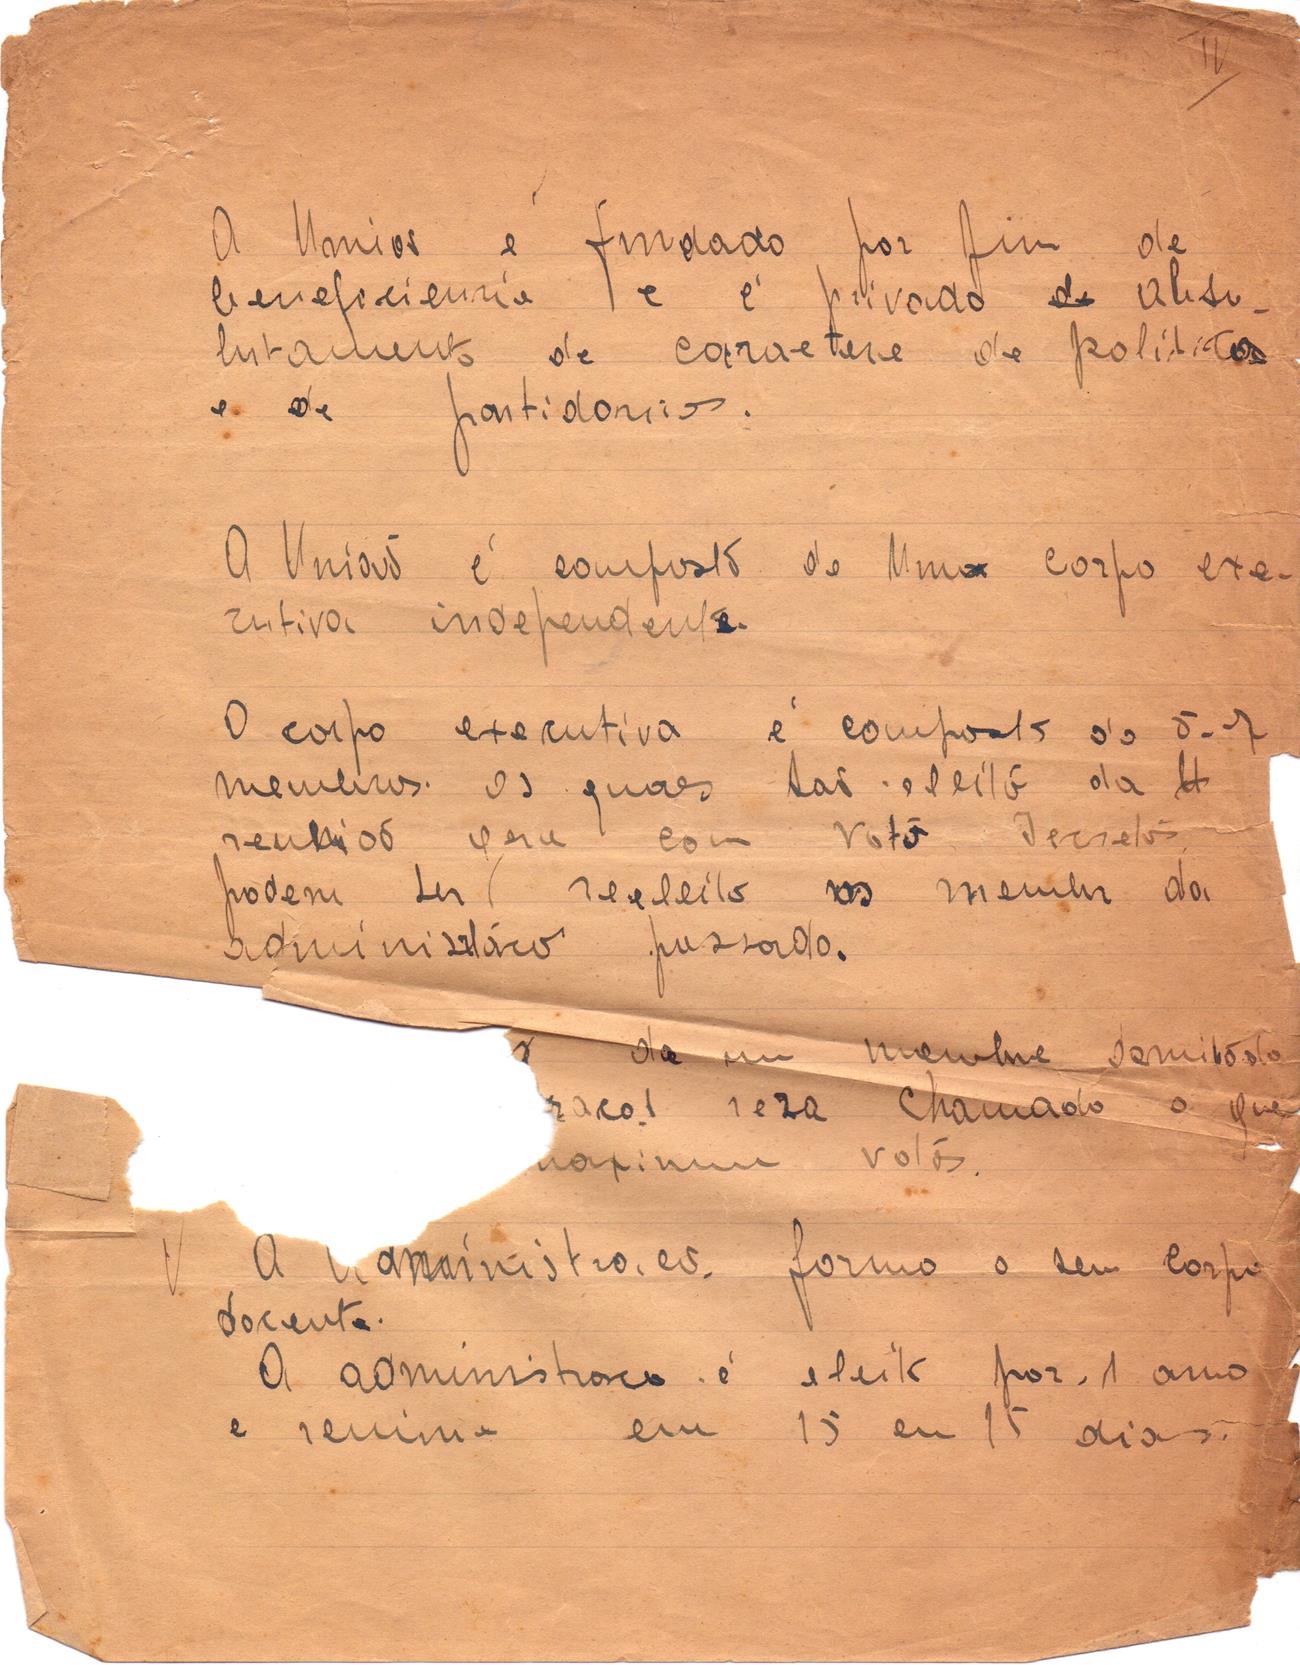 IV
A Unios é fundado por fim de
beneficiencie e é privado de absu-
lutamento de caractere de politicos
e de partidarios.
A Uniaō é compostō de Uma corpo exe-
cutiva independente.
O corpo executiva é composto do 5-7
membros. Os quaes saō eleitō da H
reuniaō com votō Secretōs
podem ser reeleito os membr da
administáco passado.
de um membre demitōdo
racos sera chamado o que
maximum votōs.
V A administracō. formo o seu corpo
docente.
A administraco é eleito por 1 anno
e reunime em 15 en 15 dias.